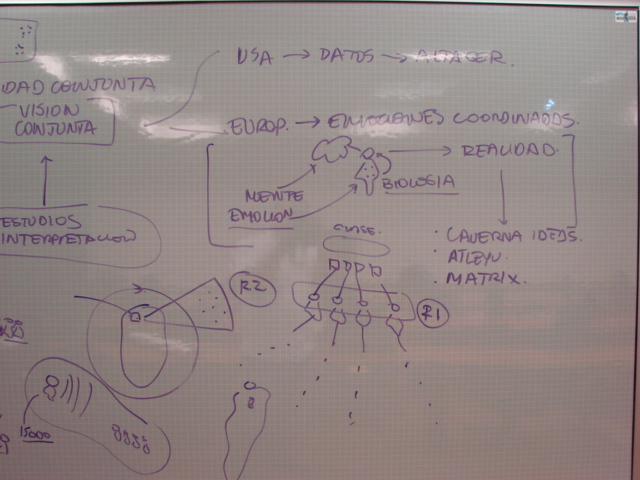 USA → DATOS → ALTACER.
IDAD CONJUNTA
VISION
CONJUNTA
EUROP. → EMOCIONES COORDINADOS.
REALIDAD.
BIOLOGIA
MENTE
EMOCION
ESTUDIOS
INTERPRETACION
CLASE.
· CAVERNA IDEAS.
· ATLEYU.
· MATRIX.
R2
R1
15000